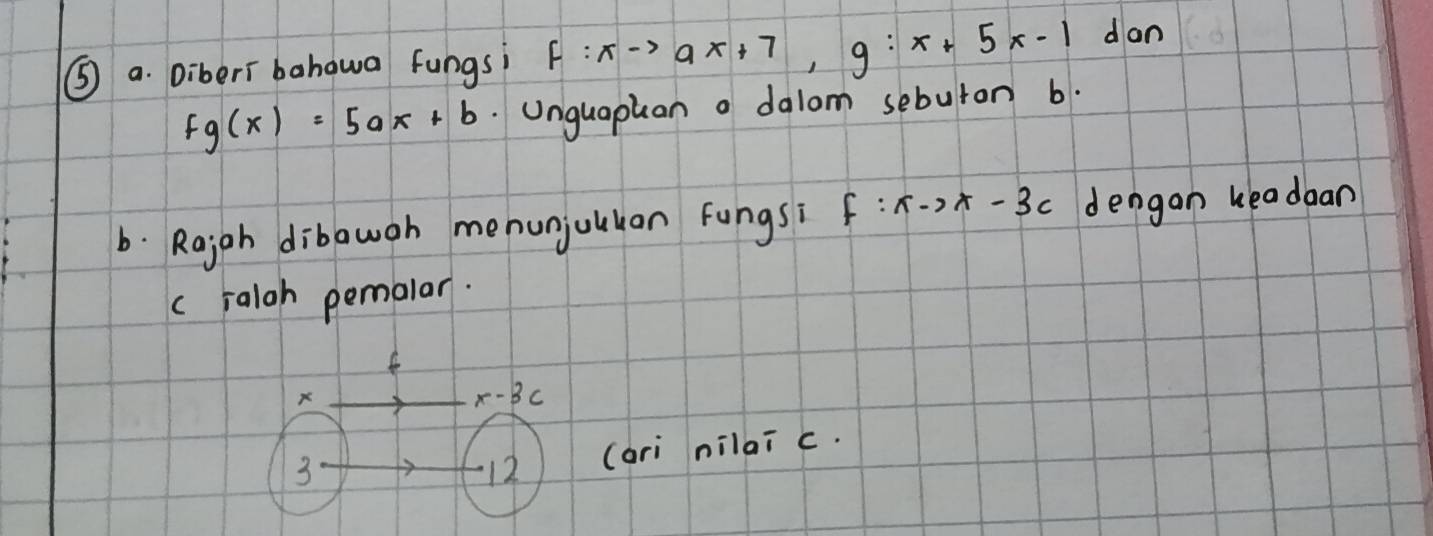 ⑤ a. Diberi bahawa fungsi f : x -> ax + 7 , g : x + 5x - 1 dan
fg(x) = 5ax + b. Unguapkan a dalam sebutan b.
b. Rajah dibawah menunjukkan fungsi f : x -> x - 3c dengan keadaan
c ialah pemalar.
f
x → x - 3c
3 → 12 Cari nilai c.